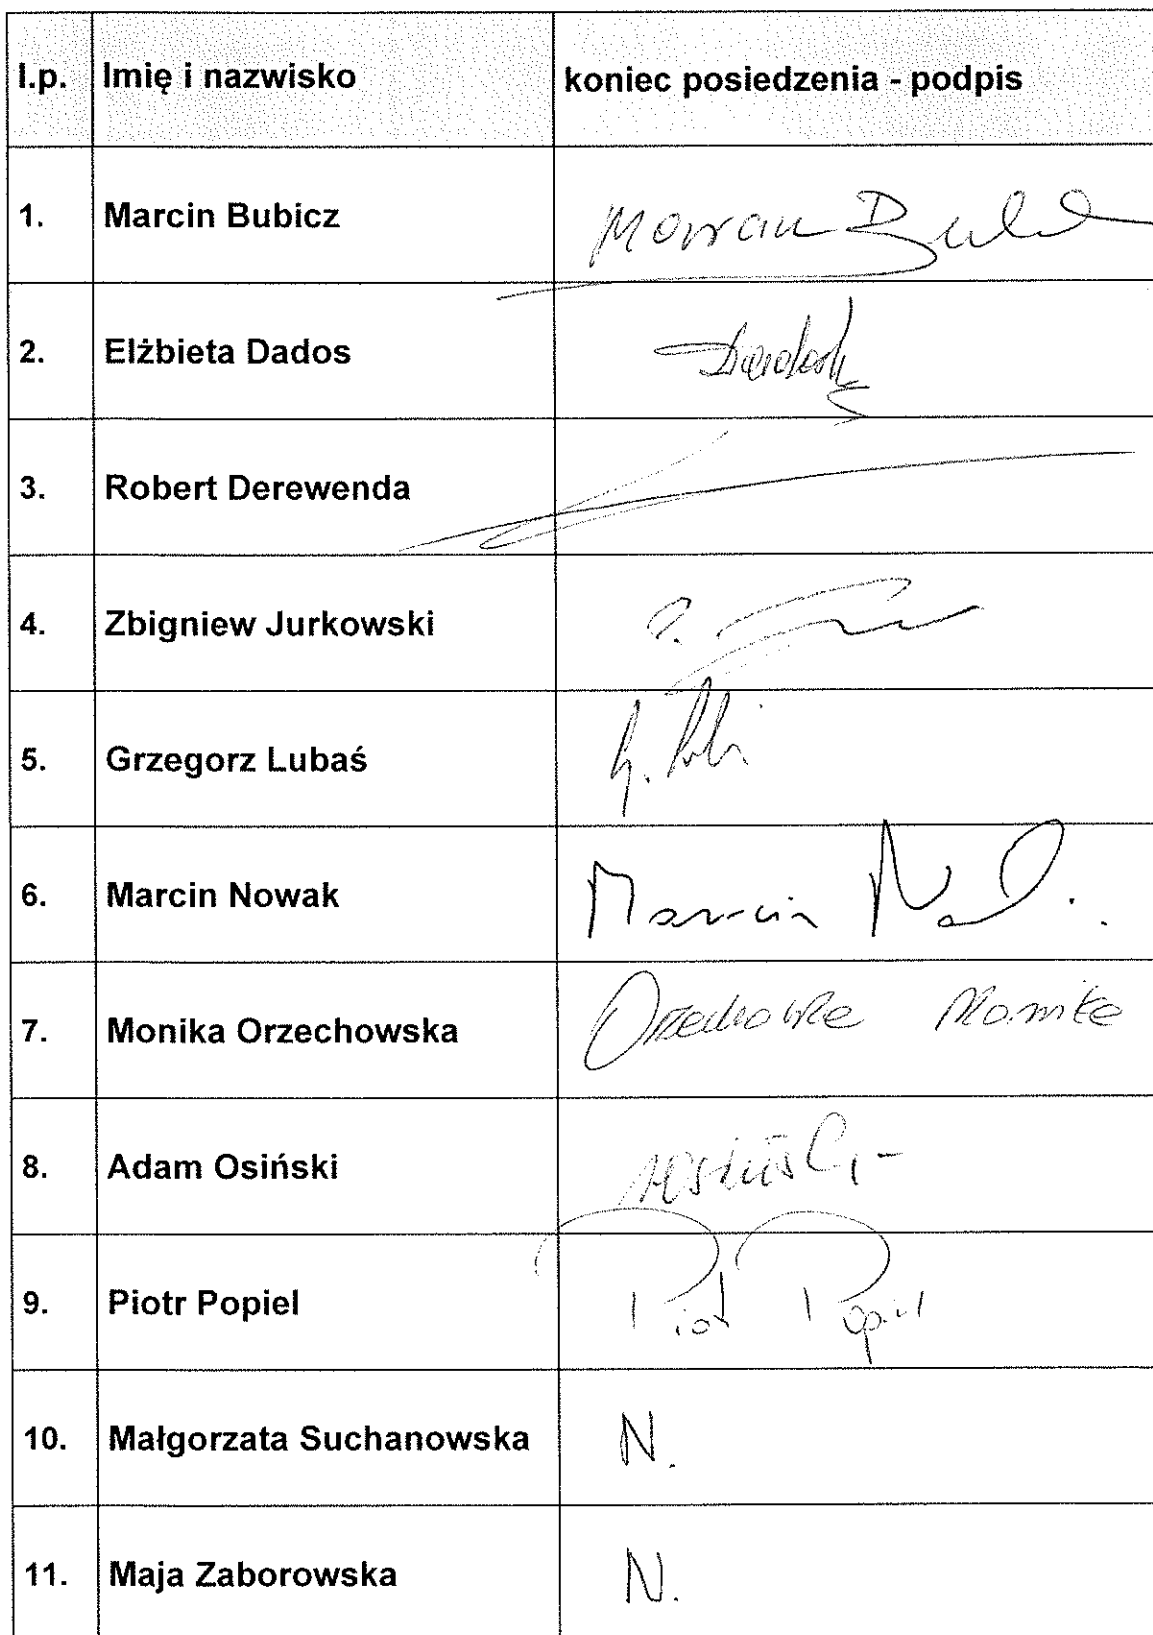 l.p. Imię i nazwisko koniec posiedzenia - podpis
1. Marcin Bubicz
2. Elżbieta Dados
3. Robert Derewenda
4. Zbigniew Jurkowski
5. Grzegorz Lubaś
6. Marcin Nowak Marcin
7. Monika Orzechowska Orzechowska Monika
8. Adam Osiński
9. Piotr Popiel Piotr Popiel
10. Małgorzata Suchanowska N.
11. Maja Zaborowska N.